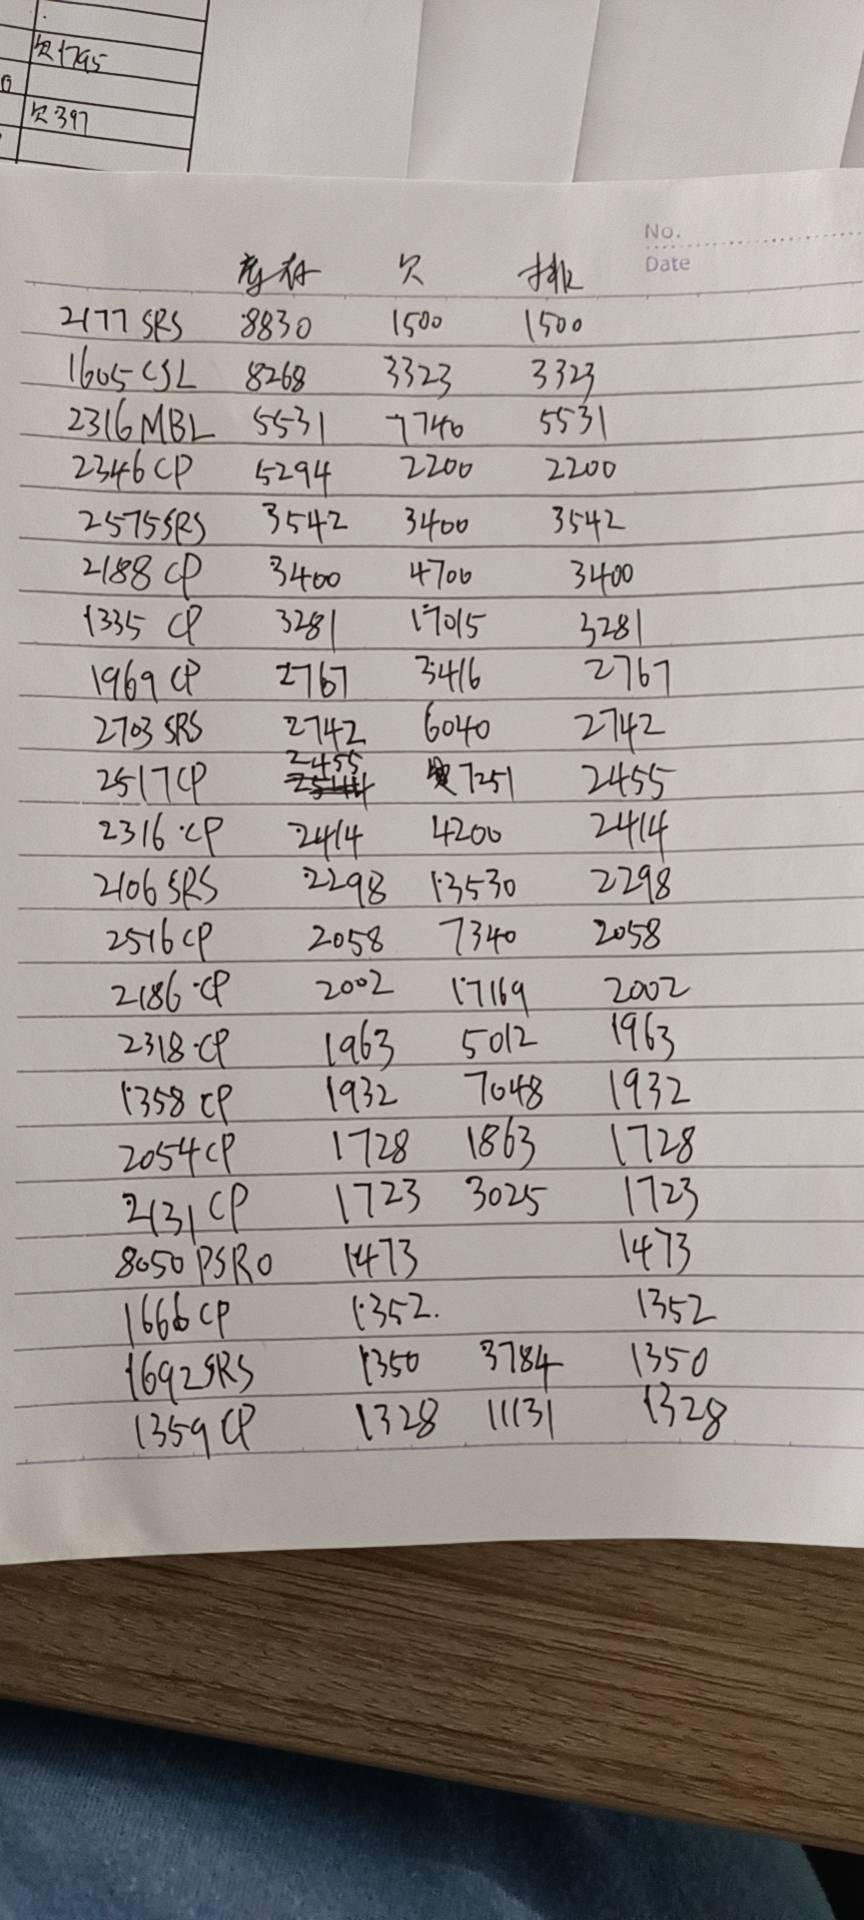 欠1795
欠397
No.
Date
库存 欠 排
2177 SRS 8830 1500 1500
1605 CSL 8268 3323 3323
2316 MBL 5531 7740 5531
2346 CP 5294 2200 2200
2575 SRS 3542 3400 3542
2188 CP 3400 4700 3400
1335 CP 3281 17015 3281
1969 CP 2767 3416 2767
2703 SRS 2742 6040 2742
2517 CP 2455 7251 2455
2316 CP 2414 4200 2414
2106 SRS 2298 13530 2298
2516 CP 2058 7340 2058
2186 CP 2002 17169 2002
2318 CP 1963 5012 1963
1358 CP 1932 7048 1932
2054 CP 1728 1863 1728
2131 CP 1723 3025 1723
8050 PSRO 1473 1473
1666 CP 1352. 1352
1692 SRS 1350 3784 1350
1359 CP 1328 11131 1328